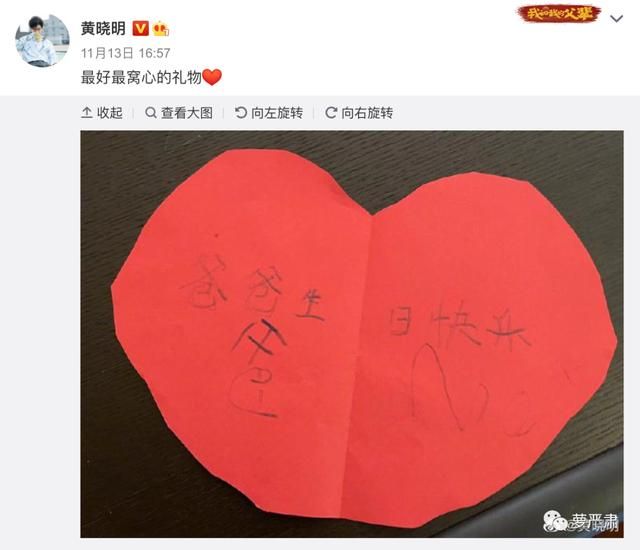 黄晓明
我和我的父辈
11月13日 16:57
最好最窝心的礼物
收起 查看大图 向左旋转 向右旋转
爸爸生日快乐
爸
萝严肃
@黄晓明